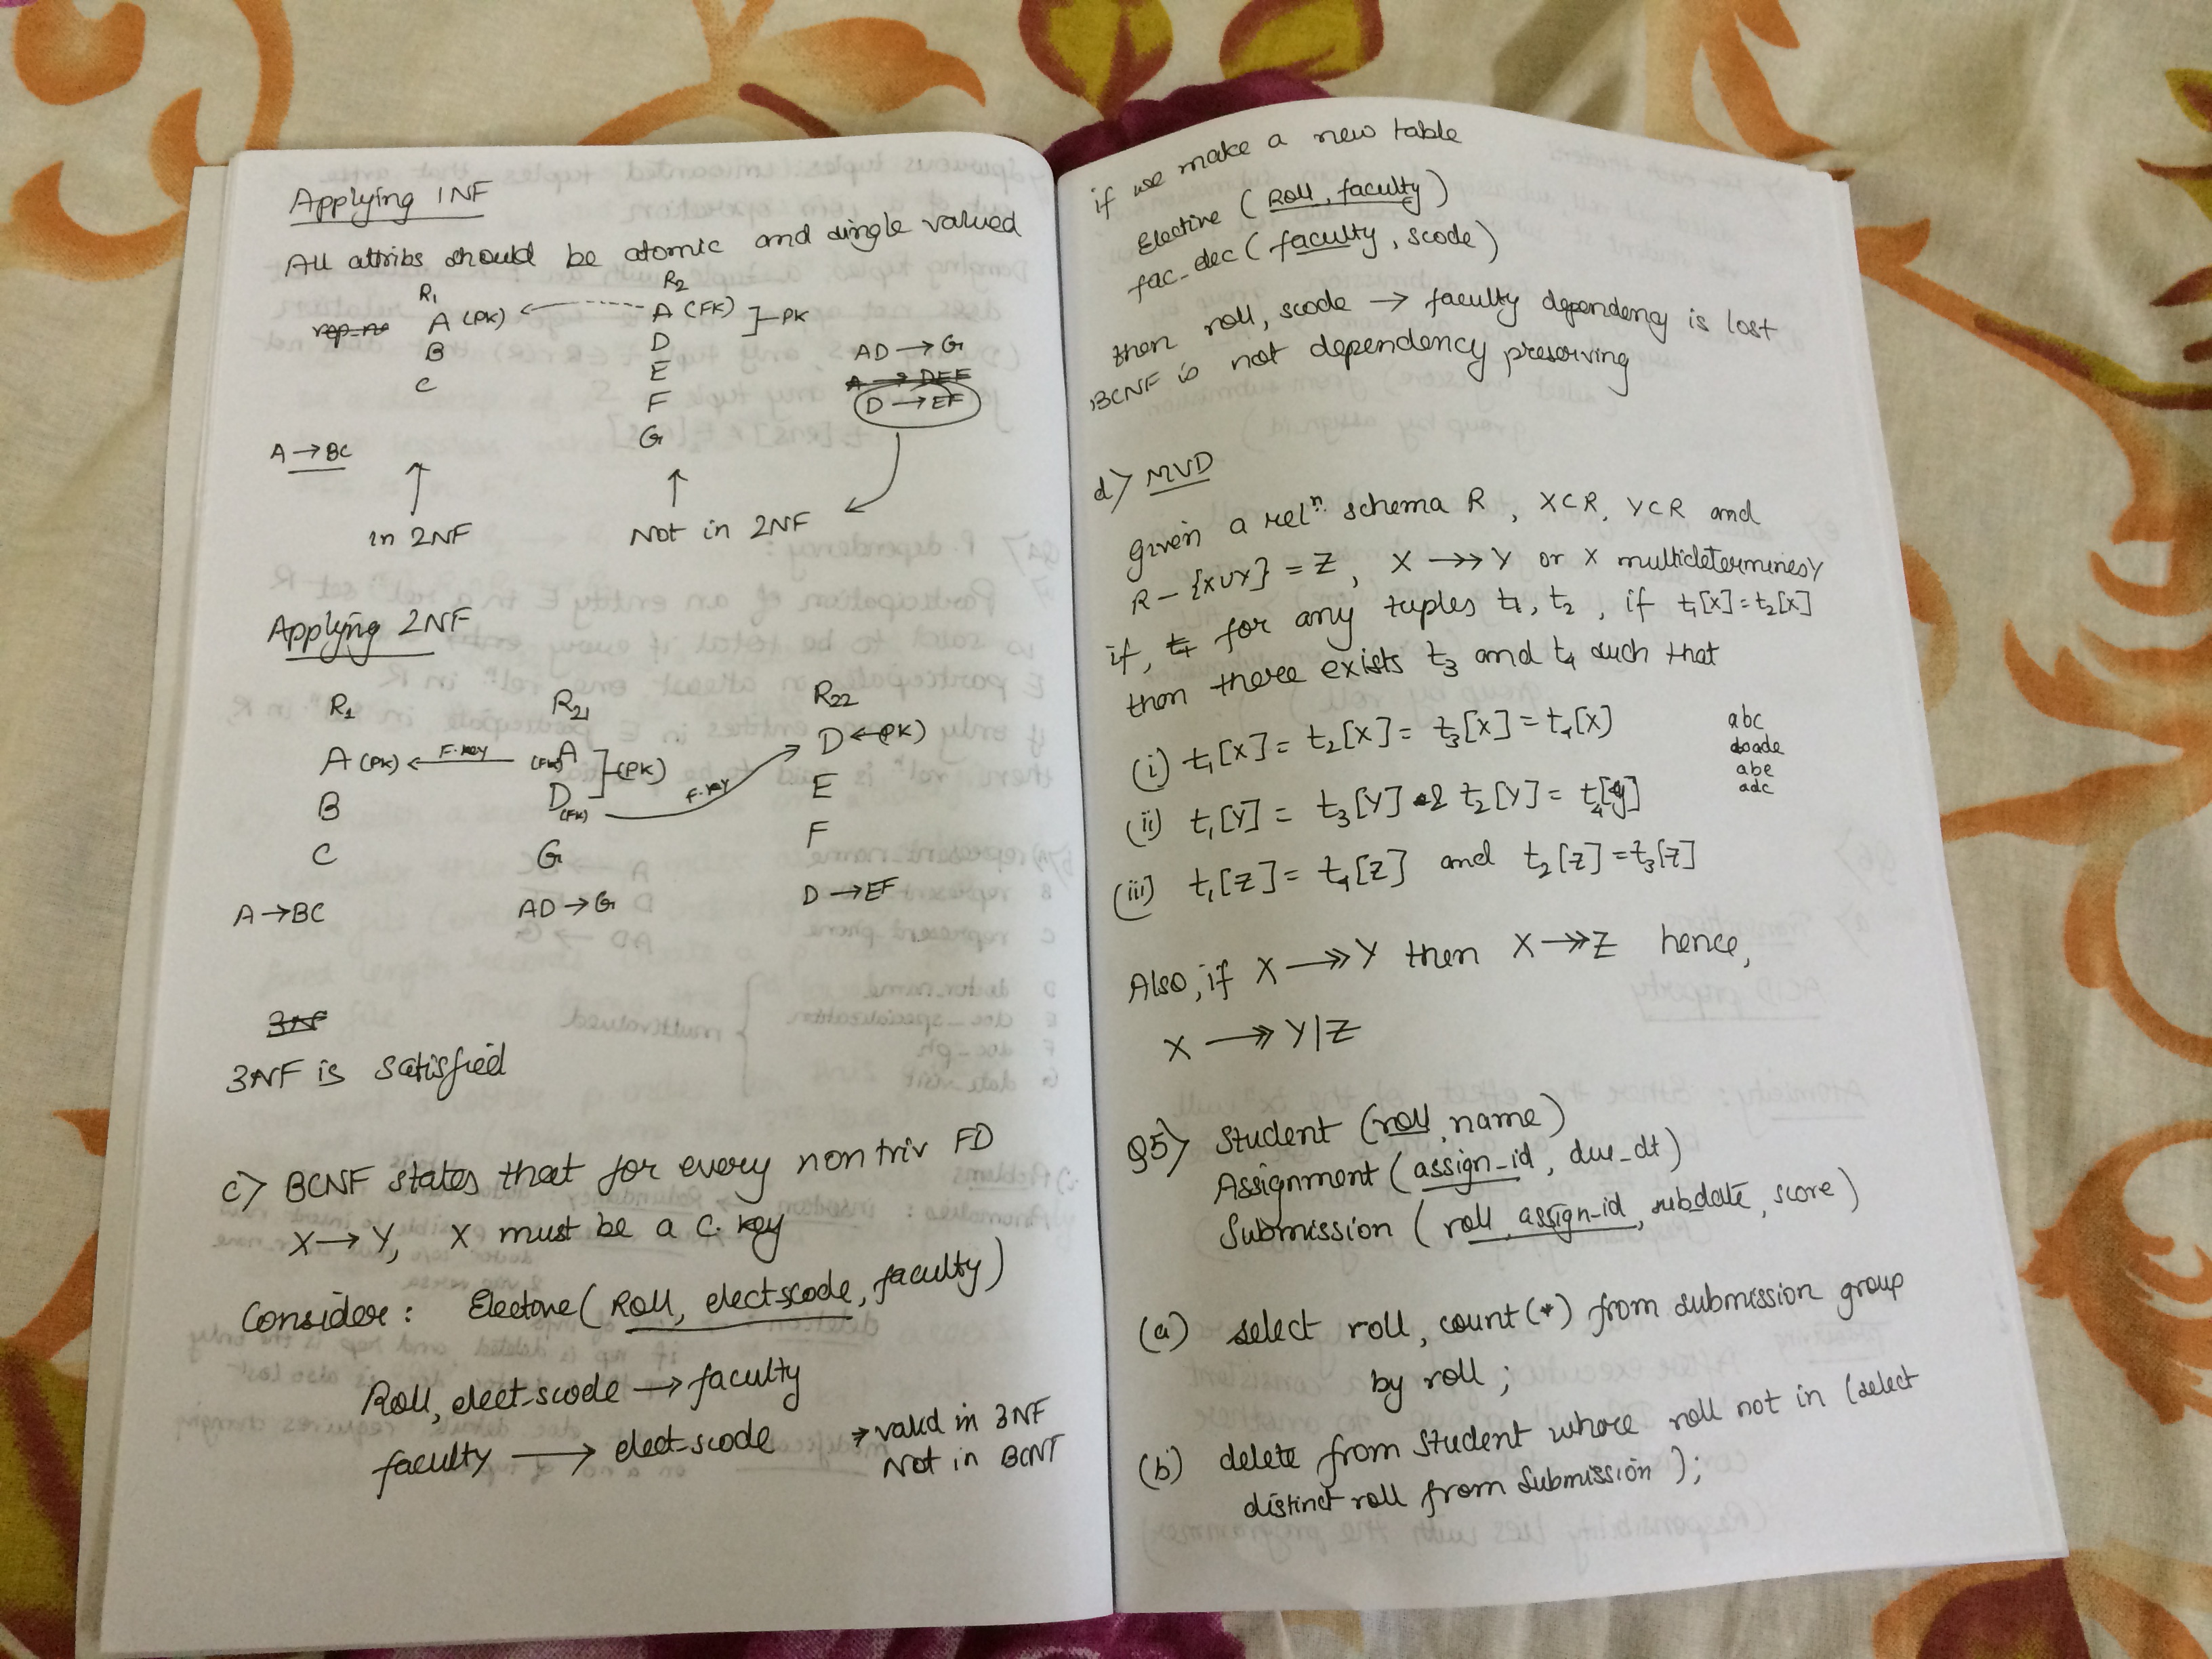 Applying 1NF
All attribs should be atomic and single valued
R1 R2
rep-no A (PK) A (FK) PK
B D AD → G
C E A → DEF
F D → EF
G
A → BC
In 2NF Not in 2NF
Applying 2NF
R1 R21 R22
A (PK) F.key (FK) A (PK) D (PK)
B D (FK) F.key E
C G F
A → BC AD → G D → EF
3NF
3NF is satisfied
c) BCNF states that for every non triv FD
X → Y, X must be a C. key
Consider: Elective (Roll, elect-scode, faculty)
Roll, elect-scode → faculty
faculty → elect-scode → valid in 3NF
Not in BCNF
if we make a new table
Elective (Roll, faculty)
fac_dec (faculty, scode)
then roll, scode → faculty dependency is lost
BCNF is not dependency preserving
d) MVD
Given a relⁿ schema R, X⊂R, Y⊂R and
R - {X∪Y} = Z, X →→ Y or X multidetermines Y
if, t1 for any tuples t1, t2, if t1[x] = t2[x]
then there exists t3 and t4 such that
(i) t1[x] = t2[x] = t3[x] = t4[x]
(ii) t1[Y] = t3[Y] & t2[Y] = t4[y]
(iii) t1[z] = t4[z] and t2[z] = t3[z]
abc
ade
abe
adc
Also, if X →→ Y then X →→ Z hence,
X →→ Y|Z
Q5) Student (roll, name)
Assignment (assign_id, due_dt)
Submission (roll, assign-id, subdate, score)
(a) select roll, count(*) from submission group
by roll;
(b) delete from student where roll not in (select
distinct roll from Submission);